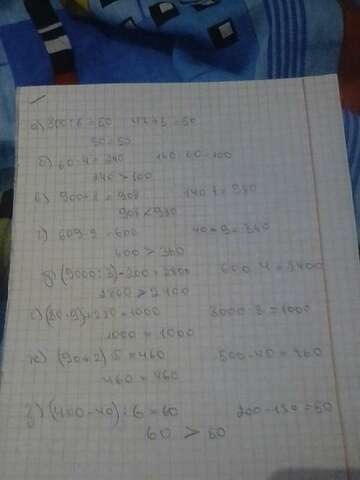 а) 300:6=50 42+8=50
50=50
б) 60·4=240 160-60=100
240>100
в) 900+8=908 140·7=980
908<980
г) 609-9=600 40·9=360
600>360
д) (9000:3)-200=2800 600·4=2400
2800>2400
е) (80·9)+280=1000 8000:8=1000
1000=1000
ж) (90+2)·5=460 500-40=460
460=460
з) (400-40):6=60 200-150=50
60>50